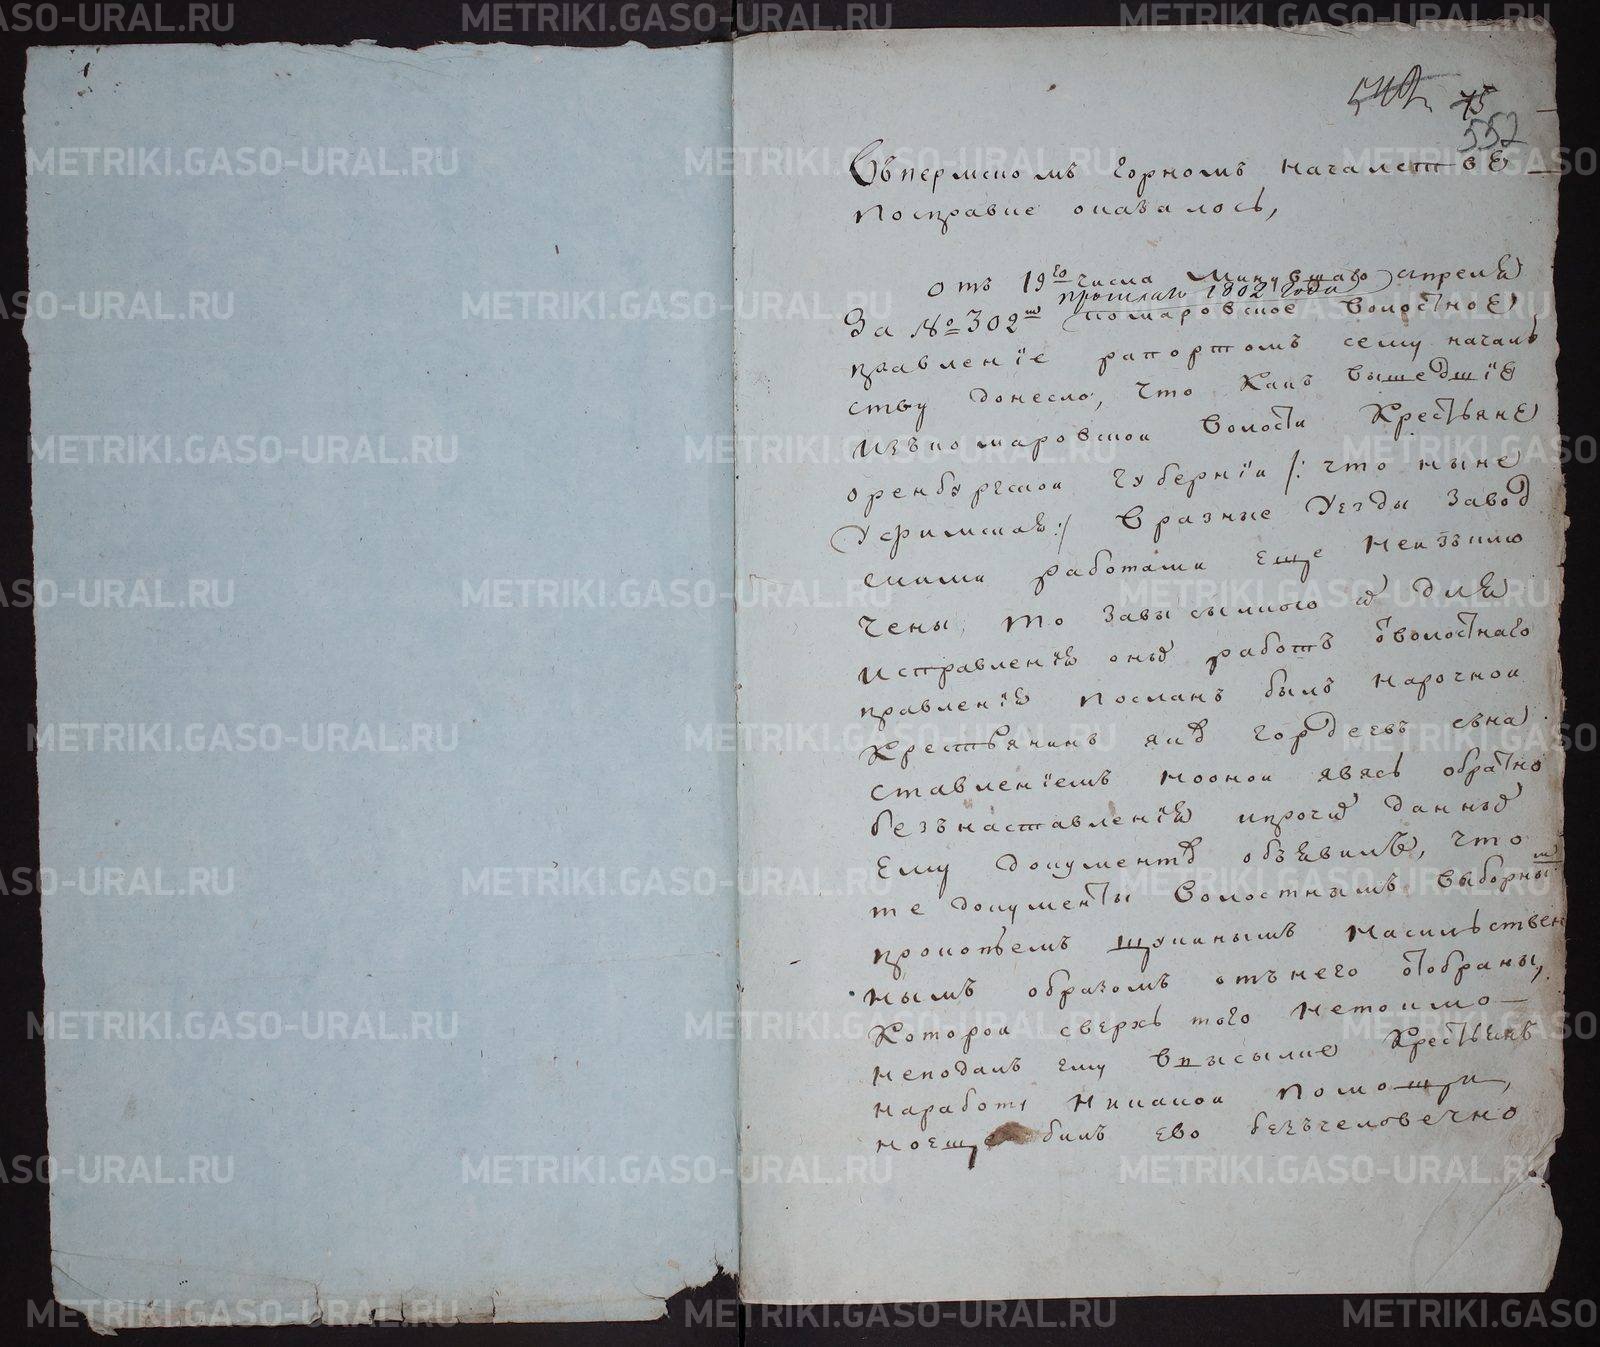 75
552
Въ пермскомъ горномъ началстве
посправке оказалось,
отъ 19го числа минувшаго апреля
прошлаго 1802 года
За № 302м комаровское волостное
правление рапортомъ сему началь
ству донесло, что какъ вышедшие
изъ комаровской волости крестьяне
оренбургской губернии /: что ныне
Уфимская :/ в разные уезды завод
скими работами еще неизъклю
чены, то завысылкою их для
исправления оных работъ отволостнаго
правления посланъ былъ нарочной
крестьянинъ яков гордеевъ съна
ставлениемъ но оной явясь обратно
безънаставления и прочих данных
ему документов объявилъ, что
те документы волостнымъ выборным
прокопьемъ щукинымъ насильствен
нымъ образомъ отънего отобраны,
которой сверхъ того нетокмо
неподалъ ему ввысылке крестьянъ
наработы никакой помощи,
ноеще билъ ево безъчеловечно
METRIKI.GASO-URAL.RU